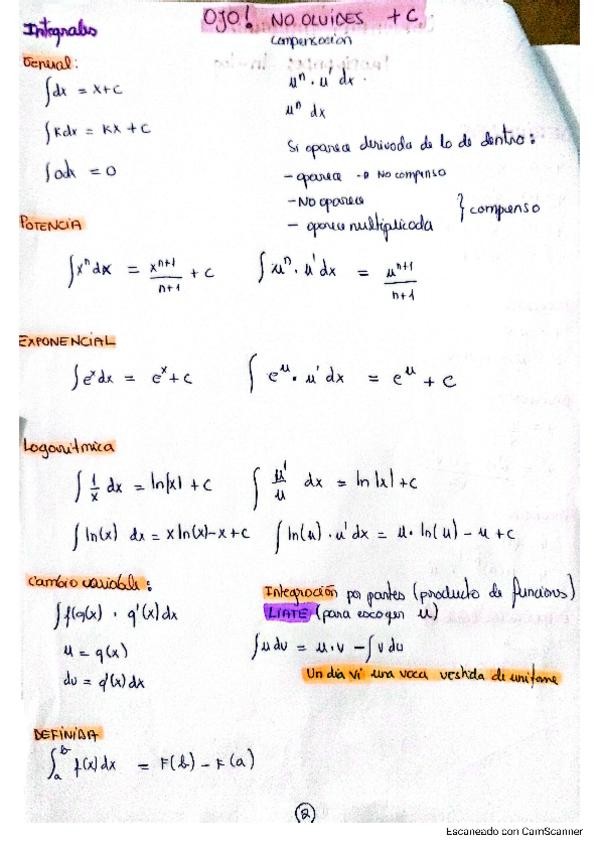 Integrales
OJO! NO OLVIDES + C
compensación
General:
∫dx = x+c
uⁿ · u' dx ·
uⁿ dx
∫kdx = kx + c
Si aparece derivada de lo de dentro:
- aparece → No compenso
∫odx = 0
- No aparece
- aparece multiplicada } compenso
POTENCIA
∫xⁿdx = xⁿ⁺¹/n+1 + c
∫uⁿ · u'dx = uⁿ⁺¹/n+1
EXPONENCIAL
∫eˣdx = eˣ+c
∫eᵘ · u'dx = eᵘ + c
Logarítmica
∫ 1/x dx = ln|x| + c
∫ u'/u dx = ln |x| + c
∫ln(x) dx = x ln(x) - x + c
∫ln(u) · u'dx = u · ln(u) - u + c
Cambio variable:
∫f(g(x) · g'(x)dx
u = g(x)
du = g'(x)dx
Integración por partes (producto de funciones)
LIATE (para escoger u)
∫u dv = u · v - ∫v du
Un día vi una vaca vestida de uniforme
DEFINIDA
∫ₐᵇ f(x)dx = F(b) - F(a)
2
Escaneado con CamScanner